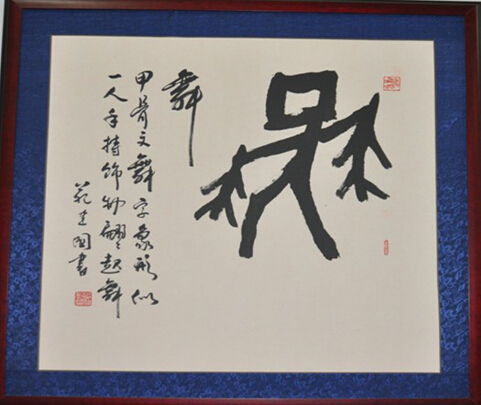 舞
舞
甲骨文舞字象形似
一人手持饰物翩起舞
范建国書